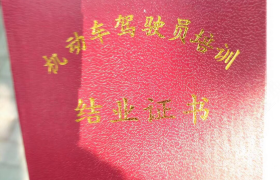 机动车驾驶员培训
结业证书